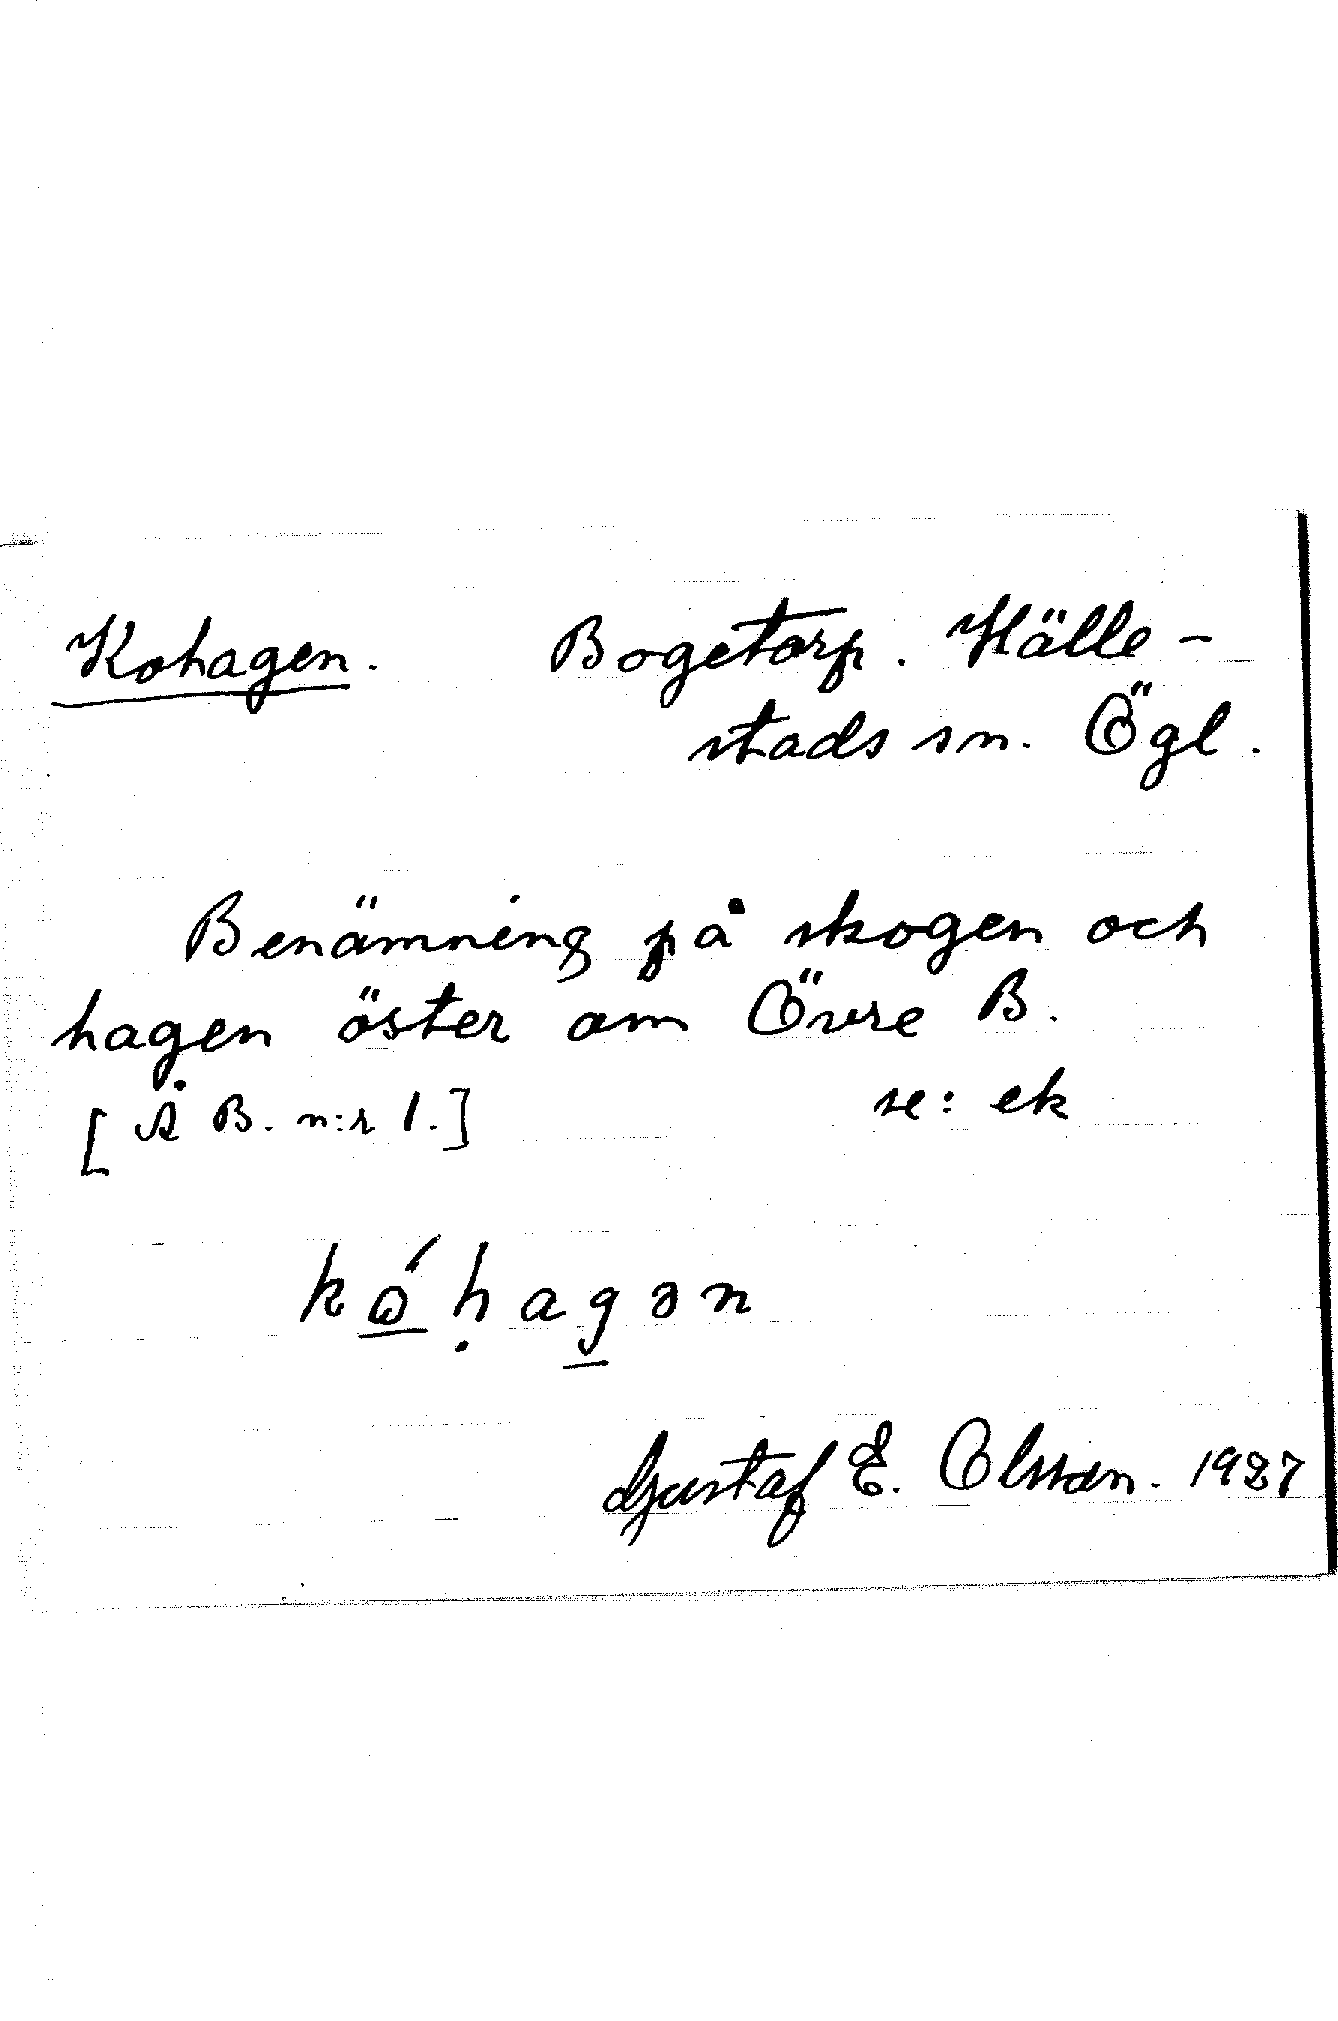 Kohagen. Bogetorp. Hälle-
stads sn. Ögl.
Benämning på skogen och
hagen öster om Övre B.
[Ä B. n:r 1.] se: ek
kǫ́ḥagən
Gustaf E. Olsson. 1927